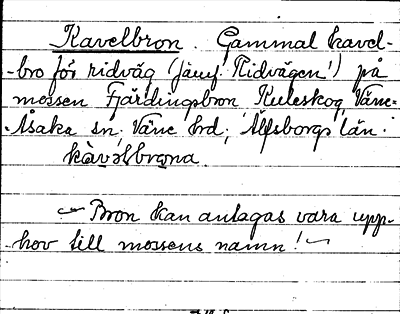 Kavelbron. Gammal kavel-
-bro för ridväg (jämf. 'Ridvägen'!) på
mossen Fjärdingsbron Kuleskog, Väne-
-Åsaka sn, Väne hd, Älfsborgs län.
kàvəlbrona.
~ Bron kan antagas vara upp-
-hov till mossens namn! ~